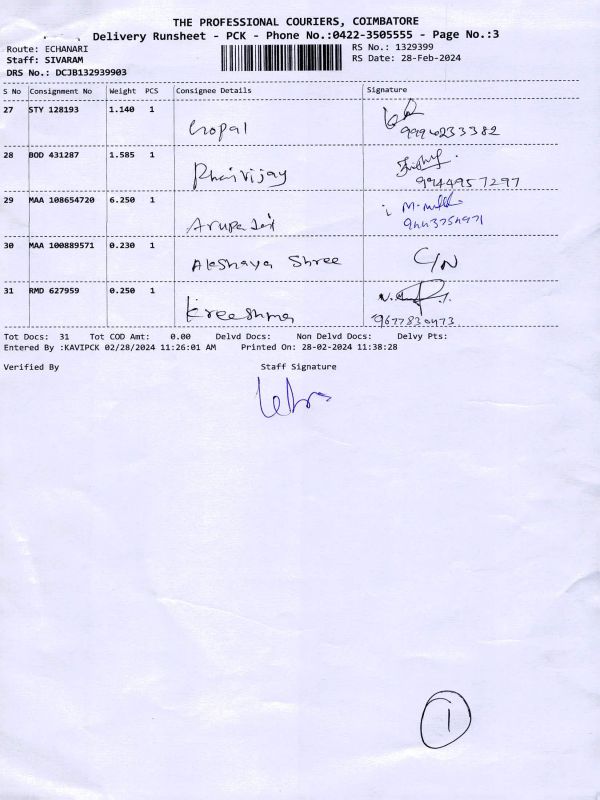 THE PROFESSIONAL COURIERS, COIMBATORE
Delivery Runsheet - PCK - Phone No.:0422-3505555 - Page No.:3
Route: ECHANARI
RS No.: 1329399
Staff: SIVARAM
RS Date: 28-Feb-2024
DRS No.: DCJB132939903
S No Consignment No Weight PCS Consignee Details Signature
27 STY 128193 1.140 1 Gopal
28 BOD 431287 1.585 1
9944957297
29 MAA 108654720 6.250 1
30 MAA 100889571 0.230 1 Akshaya Shree C/N
31 RMD 627959 0.250 1 Kreeshma
9677830473
Tot Docs: 31 Tot COD Amt: 0.00 Delvd Docs: Non Delvd Docs: Delvy Pts:
Entered By :KAVIPCK 02/28/2024 11:26:01 AM Printed On: 28-02-2024 11:38:28
Verified By Staff Signature
1